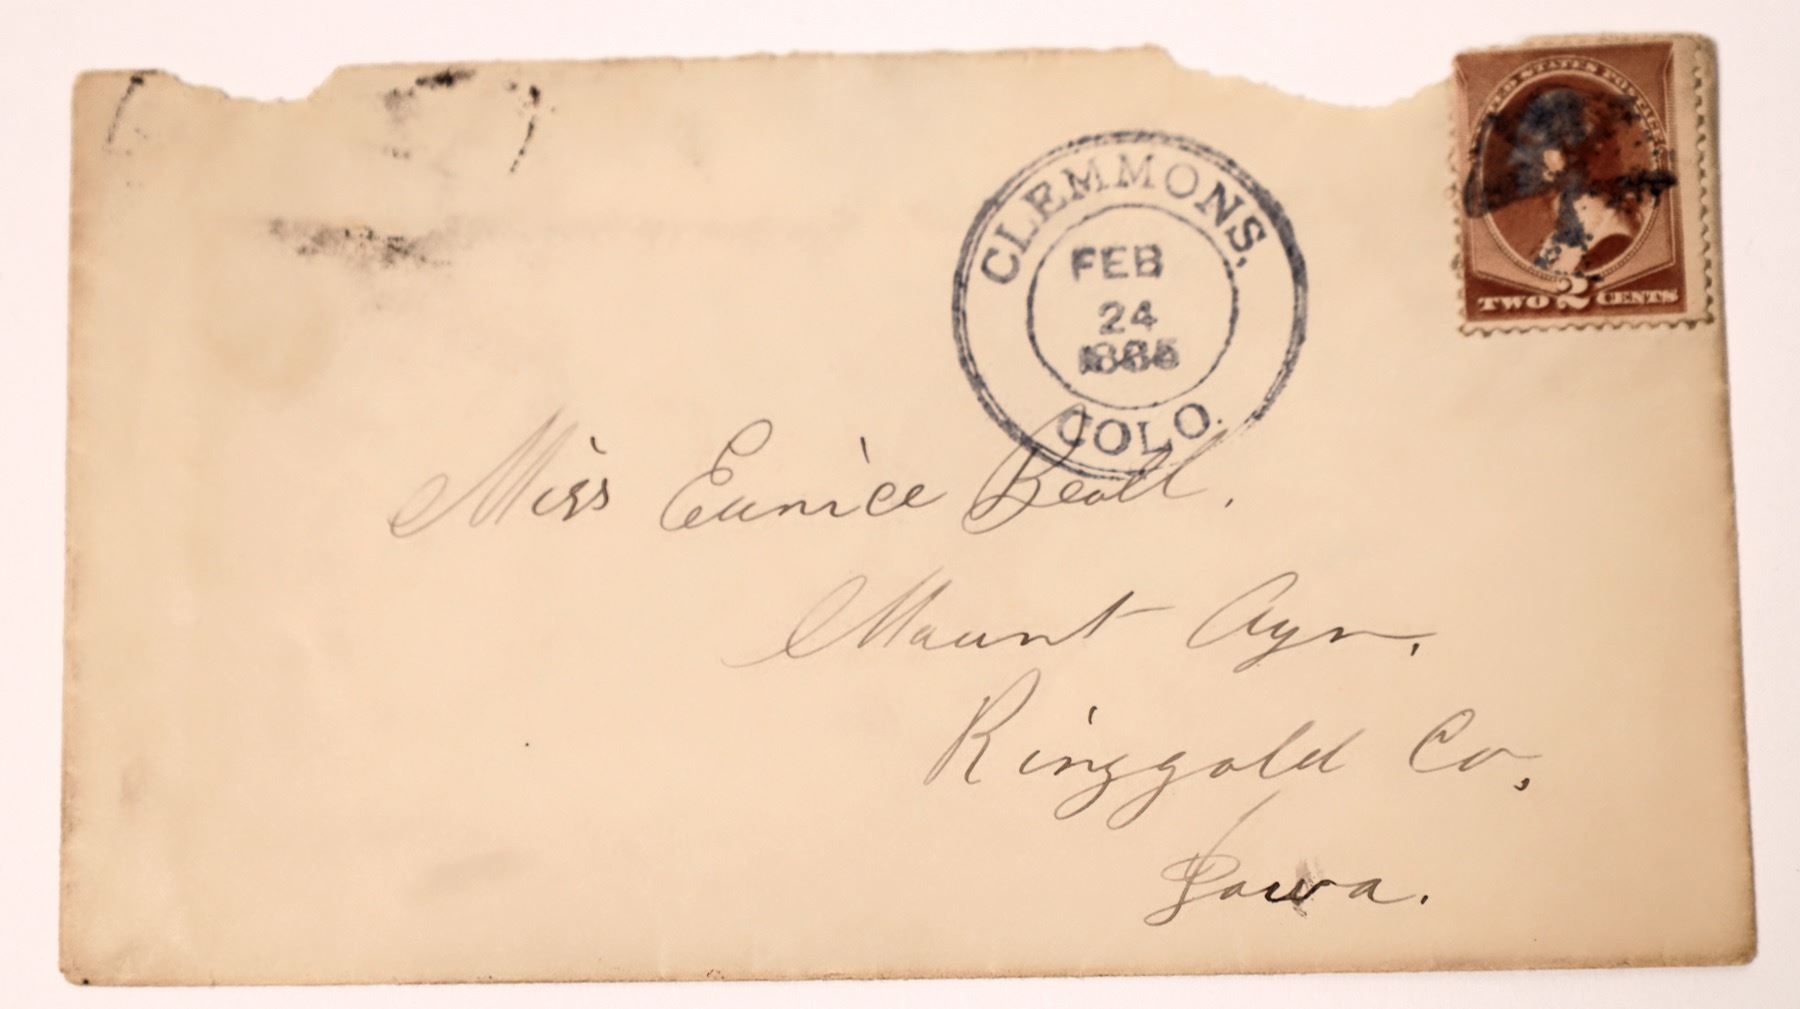 UNITED STATES POSTAGE
TWO 2 CENTS
CLEMMONS,
FEB
24
1885
COLO.
Miss Eunice Beall.
Mount Ayr,
Ringgold Co,
Iowa.